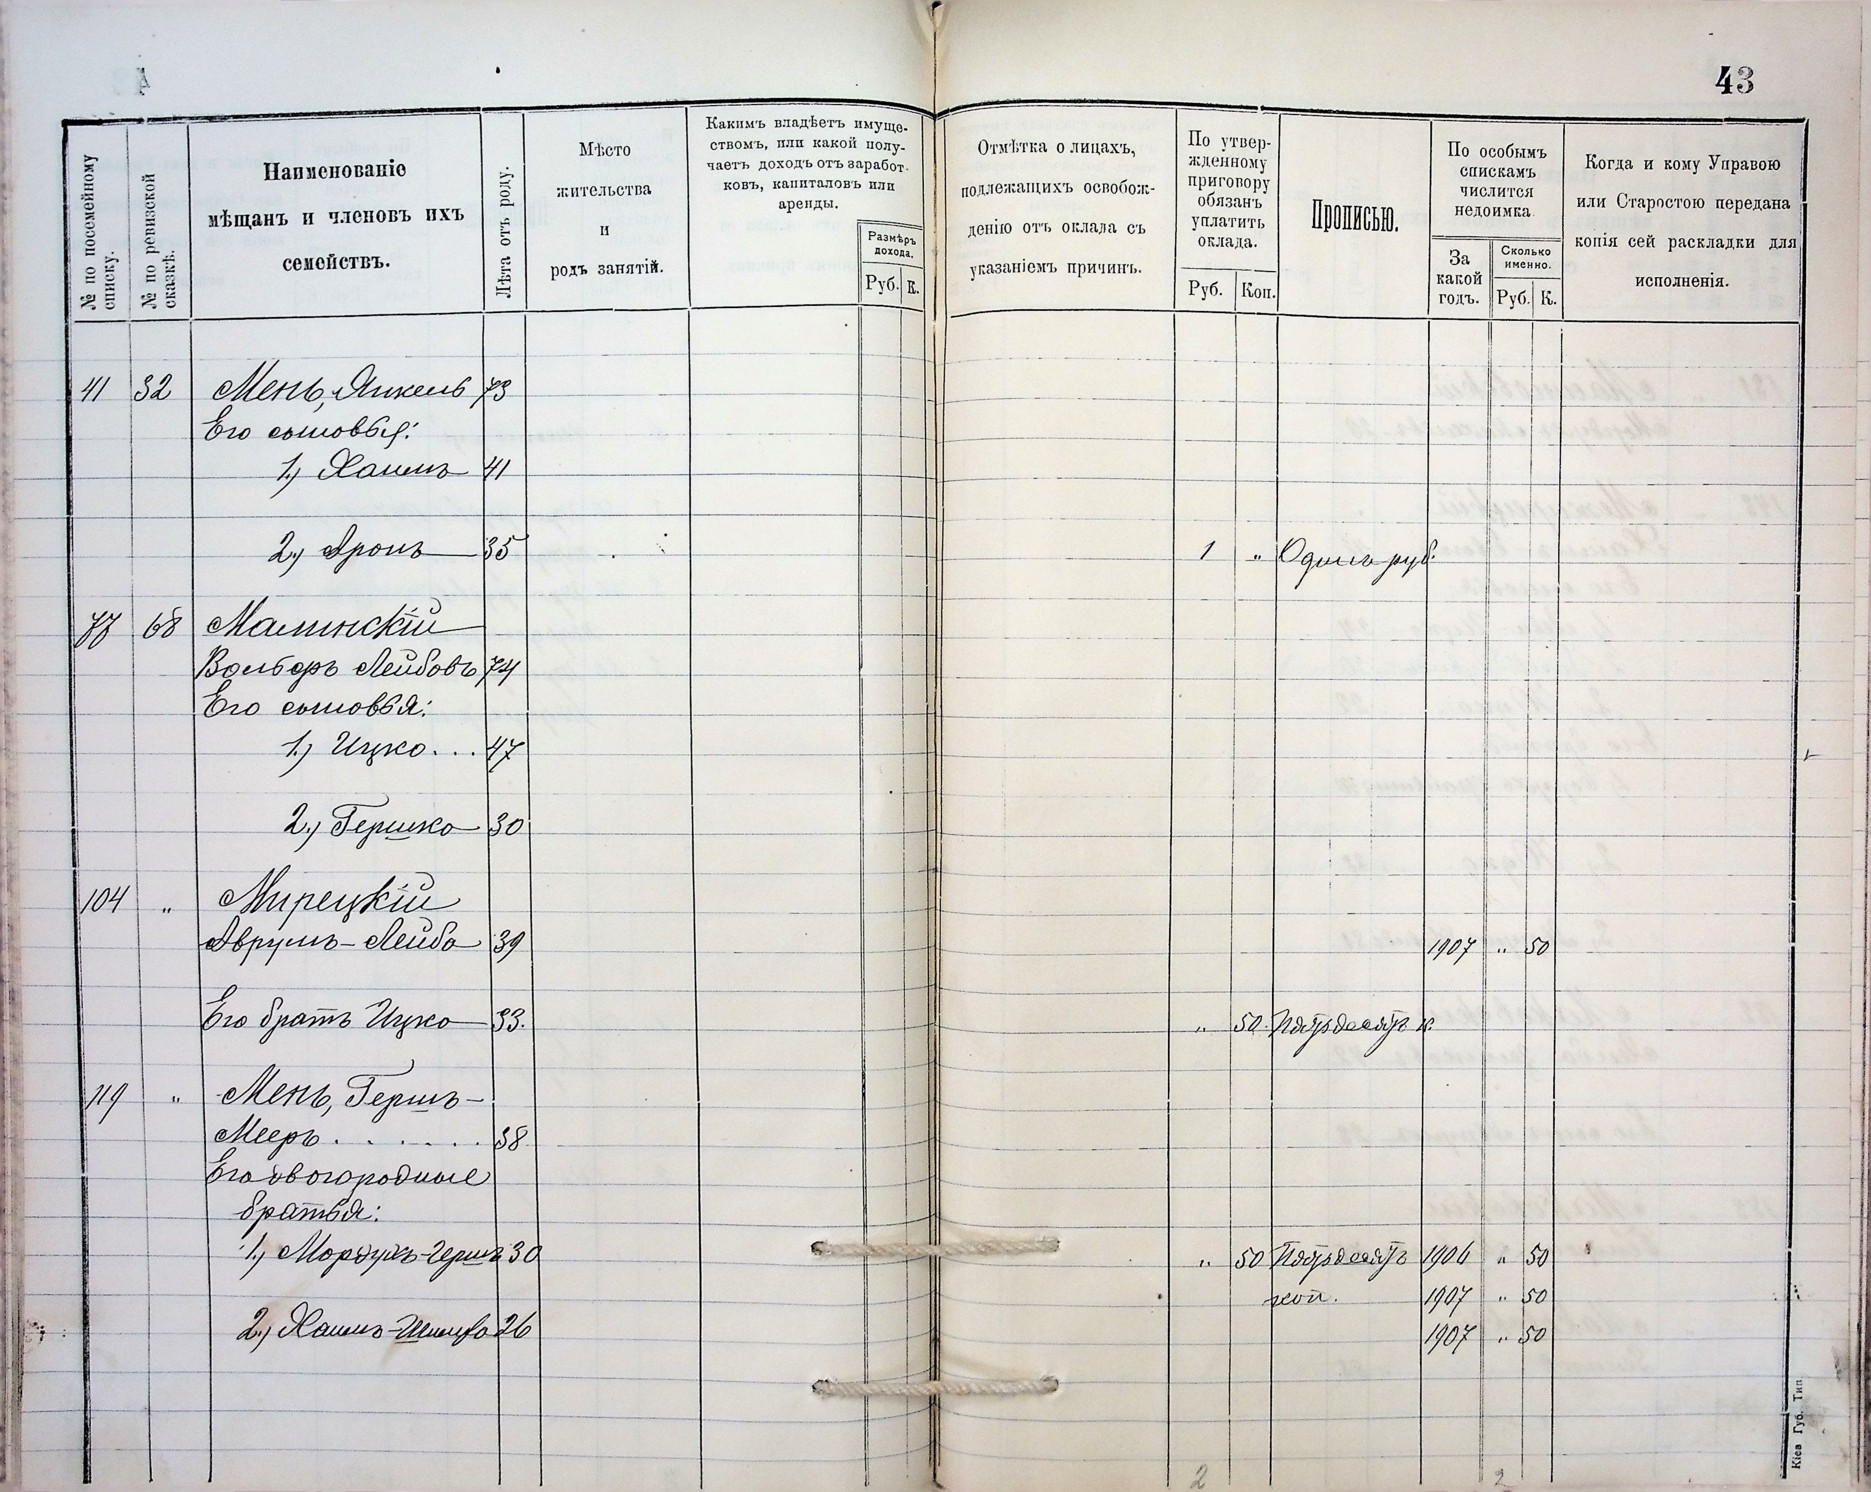 43
№ по посемейному списку.
№ по ревизской сказкѣ.
Наименованіе
мѣщанъ и членовъ ихъ
семействъ.
Лѣта отъ роду.
Мѣсто
жительства
и
родъ занятій.
Какимъ владѣетъ имуще-
ствомъ, или какой полу-
чаетъ доходъ отъ заработ-
ковъ, капиталовъ или
аренды.
Размѣръ
дохода.
Руб. К.
Отмѣтка о лицахъ,
подлежащихъ освобож-
денію отъ оклада съ
указаніемъ причинъ.
По утвер-
жденному
приговору
обязанъ
уплатить
оклада.
Руб. Коп.
Прописью.
По особымъ
спискамъ
числится
недоимка.
За
какой
годъ.
Сколько
именно.
Руб. К.
Когда и кому Управою
или Старостою передана
копія сей раскладки для
исполненія.
41 32 Мень, Янкель 73
Его сыновья:
1.) Хаимъ 41
2.) Аронъ 35 1 „ Одинъ руб.
77 68 Малинскій
Вольфъ Лейбовъ 74
Его сыновья:
1.) Ицко... 47
2.) Гершко 30
104 „ Мирецкій
Аврумъ-Лейба 39 1907 „ 50
Его братъ Ицко 33. „ 50 Пятьдесятъ к.
119 „ Мень, Гершъ-
Мееръ . . . . . . 38
Его двоюродные
братья:
1.) Мордухъ-Гершъ 30 „ 50 Пятьдесятъ 1906 „ 50
коп. 1907 „ 50
2.) Хаимъ- 26 1907 „ 50
2 2
Кіев. Губ. Тип.